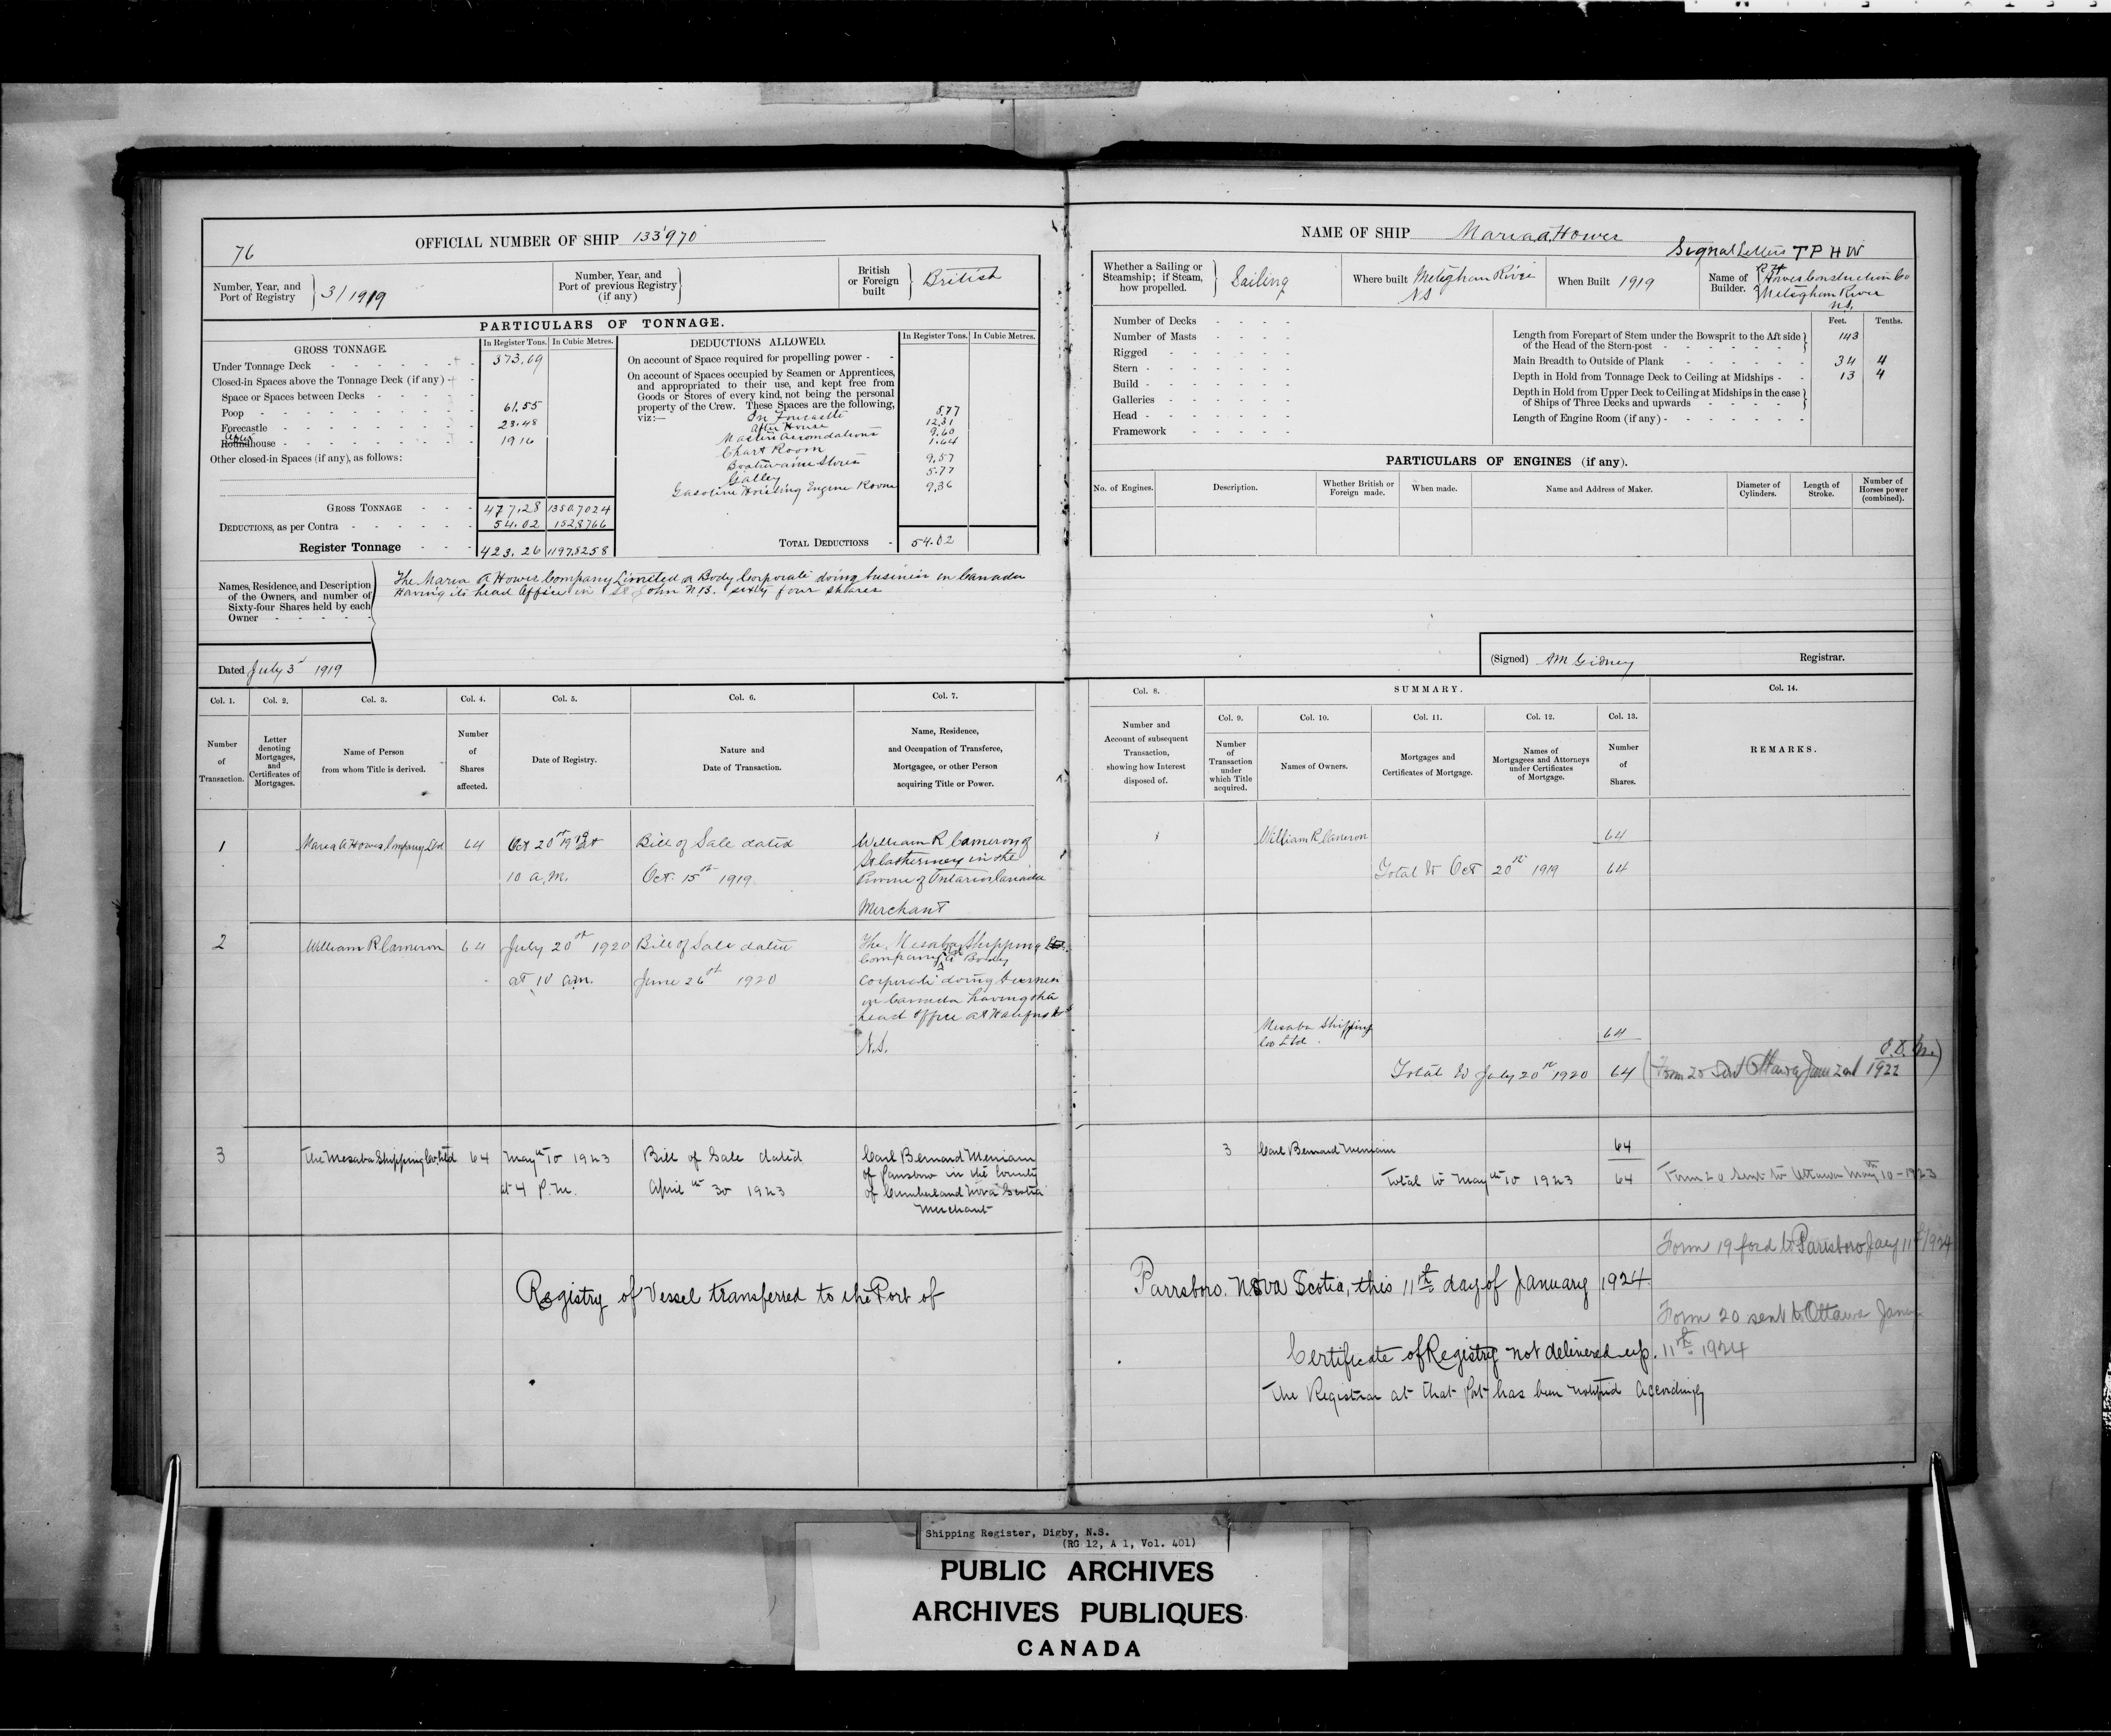 76
OFFICIAL NUMBER OF SHIP 133970
Number, Year, and Port of Registry 3/1919
Number, Year, and Port of previous Registry (if any)
British or Foreign built British
PARTICULARS OF TONNAGE.
GROSS TONNAGE.
In Register Tons. In Cubic Metres.
Under Tonnage Deck 373.09
Closed-in Spaces above the Tonnage Deck (if any)
Space or Spaces between Decks
Poop 61.55
Forecastle 23.48
Roundhouse 19.16
Other closed-in Spaces (if any), as follows:
GROSS TONNAGE 477.28 1350.7024
DEDUCTIONS, as per Contra 54.02 152.8766
Register Tonnage 423.26 1197.8258
DEDUCTIONS ALLOWED.
In Register Tons. In Cubic Metres.
On account of Space required for propelling power
On account of Spaces occupied by Seamen or Apprentices,
and appropriated to their use, and kept free from
Goods or Stores of every kind, not being the personal
property of the Crew. These Spaces are the following,
viz:—
In Forcastle 5.77
After House 12.31
Masters Accomodations 9.60
Chart Room 1.64
Boatswains Stores 9.57
Galley 5.77
Gasoline Hoisting Engine Room 9.36
TOTAL DEDUCTIONS 54.02
Names, Residence, and Description
of the Owners, and number of
Sixty-four Shares held by each
Owner
The Maria A Howes Company Limited a Body Corporate doing business in Canada
Having its head Office in St John N.B. sixty four shares
Dated July 3rd 1919
Col. 1. Col. 2. Col. 3. Col. 4. Col. 5. Col. 6. Col. 7.
Number of Transaction.
Letter denoting Mortgages, and Certificates of Mortgages.
Name of Person from whom Title is derived.
Number of Shares affected.
Date of Registry.
Nature and Date of Transaction.
Name, Residence, and Occupation of Transferee, Mortgagee, or other Person acquiring Title or Power.
1 Maria A Howes Company Ltd 64 Oct 20th 1919 at Bill of Sale dated William R Cameron of
10 a.m. Oct. 15th 1919 St Catherines in the
Province of Ontario Canada
Merchant
2 William R Cameron 64 July 20th 1920 Bill of Sale dated The Mesaba Shipping
at 10 a.m. June 26th 1920 Company Ltd a Body
Corporate doing business
in Canada having the
head office at
N.S.
3 The Mesaba Shipping Co, Ltd 64 May 10th 1923 Bill of Sale dated Carl Bernard Merriam
at 4 P.M. April 30th 1923 of Parrsboro in the County
of Cumberland Nova Scotia
Merchant
Registry of Vessel transferred to the Port of
NAME OF SHIP Maria A. Howes
Signal Letters T P H W
Whether a Sailing or Steamship; if Steam, how propelled. Sailing
Where built Meteghan River
NS
When Built 1919
Name of Builder. Howes Construction Co
Meteghan River
N.S.
Number of Decks
Number of Masts
Rigged
Stern
Build
Galleries
Head
Framework
Feet. Tenths.
Length from Forepart of Stem under the Bowsprit to the Aft side
of the Head of the Stern-post 143
Main Breadth to Outside of Plank 34 4
Depth in Hold from Tonnage Deck to Ceiling at Midships 13 4
Depth in Hold from Upper Deck to Ceiling at Midships in the case
of Ships of Three Decks and upwards
Length of Engine Room (if any)
PARTICULARS OF ENGINES (if any).
No. of Engines. Description. Whether British or Foreign made. When made. Name and Address of Maker. Diameter of Cylinders. Length of Stroke. Number of Horses power (combined).
(Signed) AM Gidney Registrar.
Col. 8. SUMMARY. Col. 14.
Col. 9. Col. 10. Col. 11. Col. 12. Col. 13.
Number and Account of subsequent Transaction, showing how Interest disposed of.
Number of Transaction under which Title acquired.
Names of Owners.
Mortgages and Certificates of Mortgage.
Names of Mortgagees and Attorneys under Certificates of Mortgage.
Number of Shares.
REMARKS.
1 William R Cameron 64
Total to Oct 20th 1919 64
Mesaba Shipping
Co Ltd. 64
Total to July 20th 1920 64 (Form 20 sent Ottawa June 2nd 1922
3 Carl Bernard Merriam 64
Total to May 10th 1923 64 Form 20 sent to Ottawa May 10th - 1923
Form 19 ford to Parrsboro Jany 11th/1924
Parrsboro. Nova Scotia, this 11th day of January 1924.
Form 20 sent to Ottawa
11th 1924
Certificate of Registry not delivered up.
The Registrar at that Port has been notified accordingly
Shipping Register, Digby, N.S.
(RG 12, A 1, Vol. 401)
PUBLIC ARCHIVES
ARCHIVES PUBLIQUES
CANADA